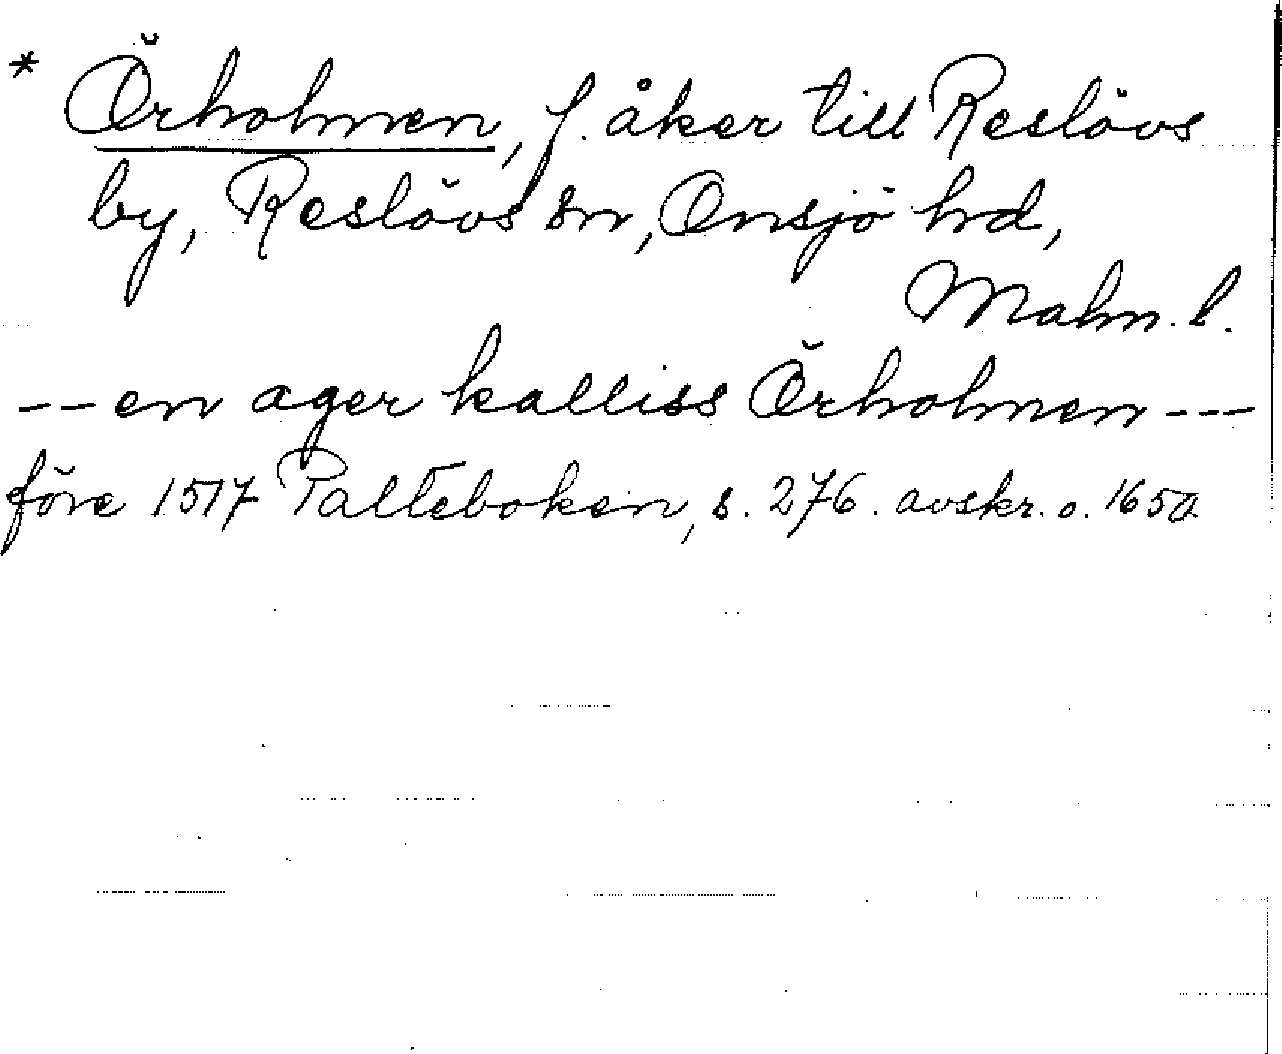 * Örholmen, f. åker till Reslövs
by, Reslövs sn, Onsjö hd,
Malm. l.
-- en ager kalliss Örholmen ---
före 1517 Palteboken, s. 276. avskr. o. 1650